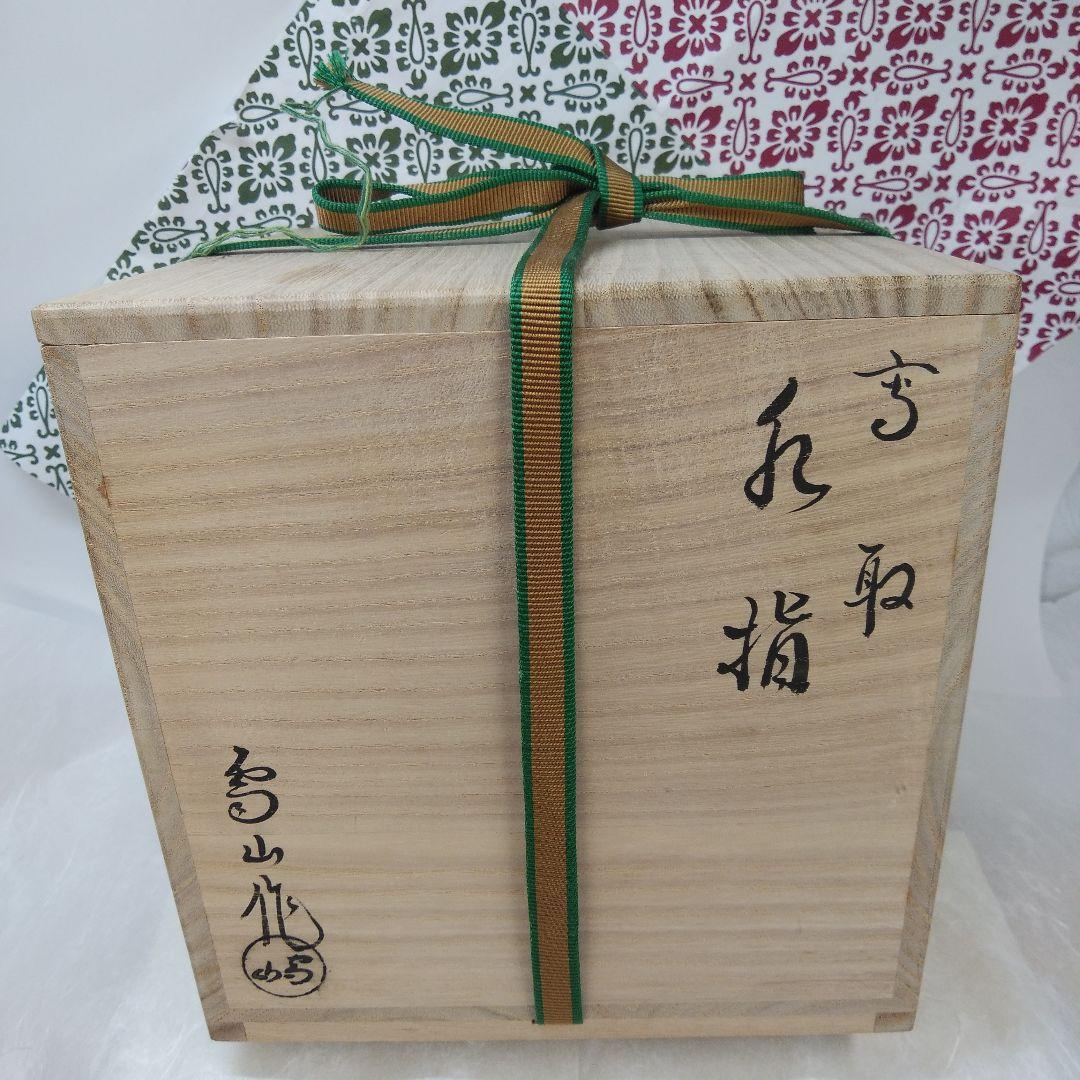 高取
水指
雪山作